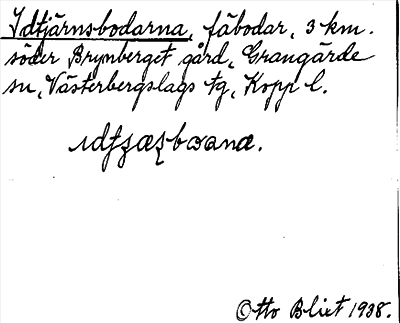 Idtjärnsbodarna, fäbodar, 3 km.
söder Brynberget gård, Grangärde
sn, Västerbergslags tg, Kopp l.
Otto Blixt 1938.